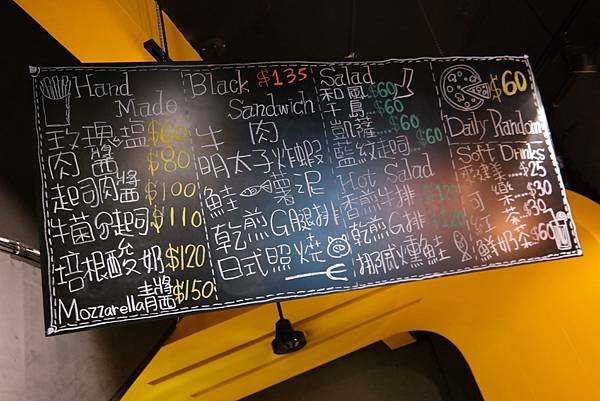 Hand
Made
玫瑰塩 $60
肉醬 $80
起司肉醬 $100
牛菌勾起司 $110
培根酸奶 $120
Mozzarella青醬 $150
Black $135
Sandwich
牛肉
明太子炸蝦
鮭魚薯泥
乾煎G腿排
日式照燒
Salad
和風 $60
千島 $60
凱薩 $60
藍紋起司
Hot Salad
香煎牛排 $120
乾煎G排 $120
挪威燻鮭
$60
Daily Random
Soft Drinks
$25
可樂 $30
紅茶 $30
鮮奶茶 $60